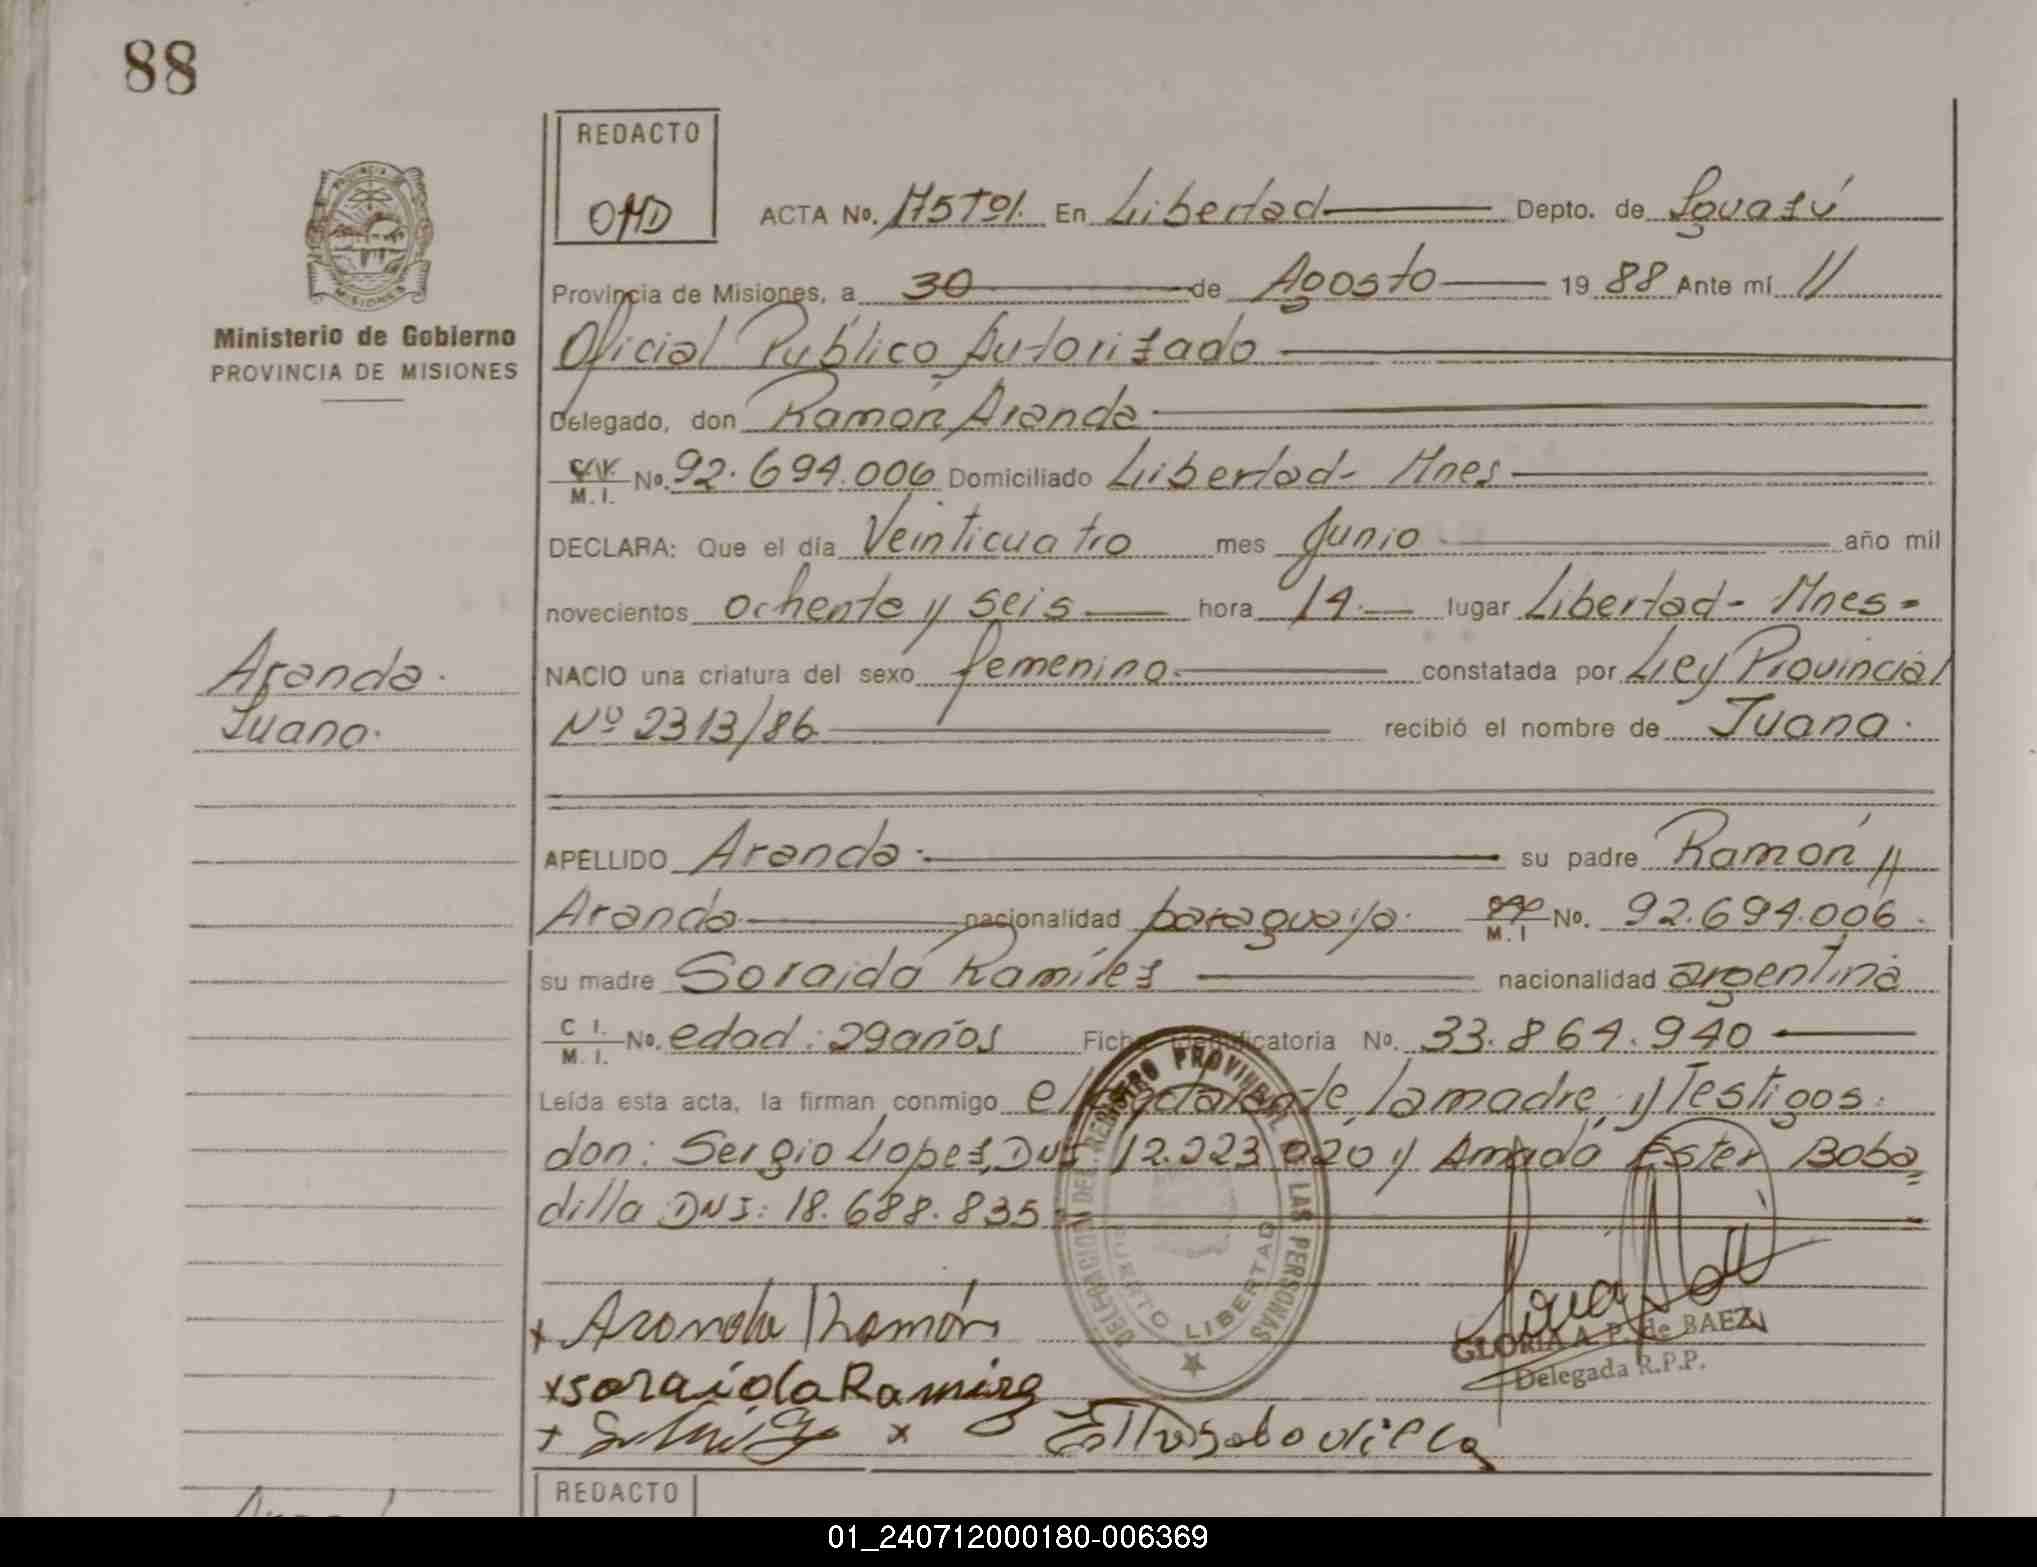 88
REDACTO
OMD
ACTA No. 175 Tº1. En Libertad Depto. de Iguazú
Provincia de Misiones, a 30 de Agosto 1988 Ante mí //
Ministerio de Gobierno
PROVINCIA DE MISIONES
Oficial Público Autorizado
Delegado, don Ramón Aranda
M. I. No. 92.694.006 Domiciliado Libertad- Mnes
DECLARA: Que el día Veinticuatro mes Junio año mil
novecientos ochenta y seis hora 14. lugar Libertad- Mnes-
Aranda.
Juana.
NACIO una criatura del sexo femenino. constatada por Ley Provincial
Nº 2313/86 recibió el nombre de Juana.
APELLIDO Aranda. su padre Ramón //
Aranda. nacionalidad paraguaya. M. I No. 92.694.006.
su madre Soraida Ramírez nacionalidad argentina
C I. M. I. No. edad: 29 años Ficha Identificatoria No. 33.864.940
Leída esta acta, la firman conmigo el declarante, la madre, y Testigos:
don: Sergio Lopez, DNI 12.223.020 y Amada Ester Boba=
dilla DNI: 18.688.835
DELEGACION DEL REGISTRO PROVINCIAL DE LAS PERSONAS
PUERTO LIBERTAD
x Aranda Ramón
GLORIA A. P. de BAEZ
Delegada R.P.P.
x soraida Ramirez
REDACTO
01_240712000180-006369